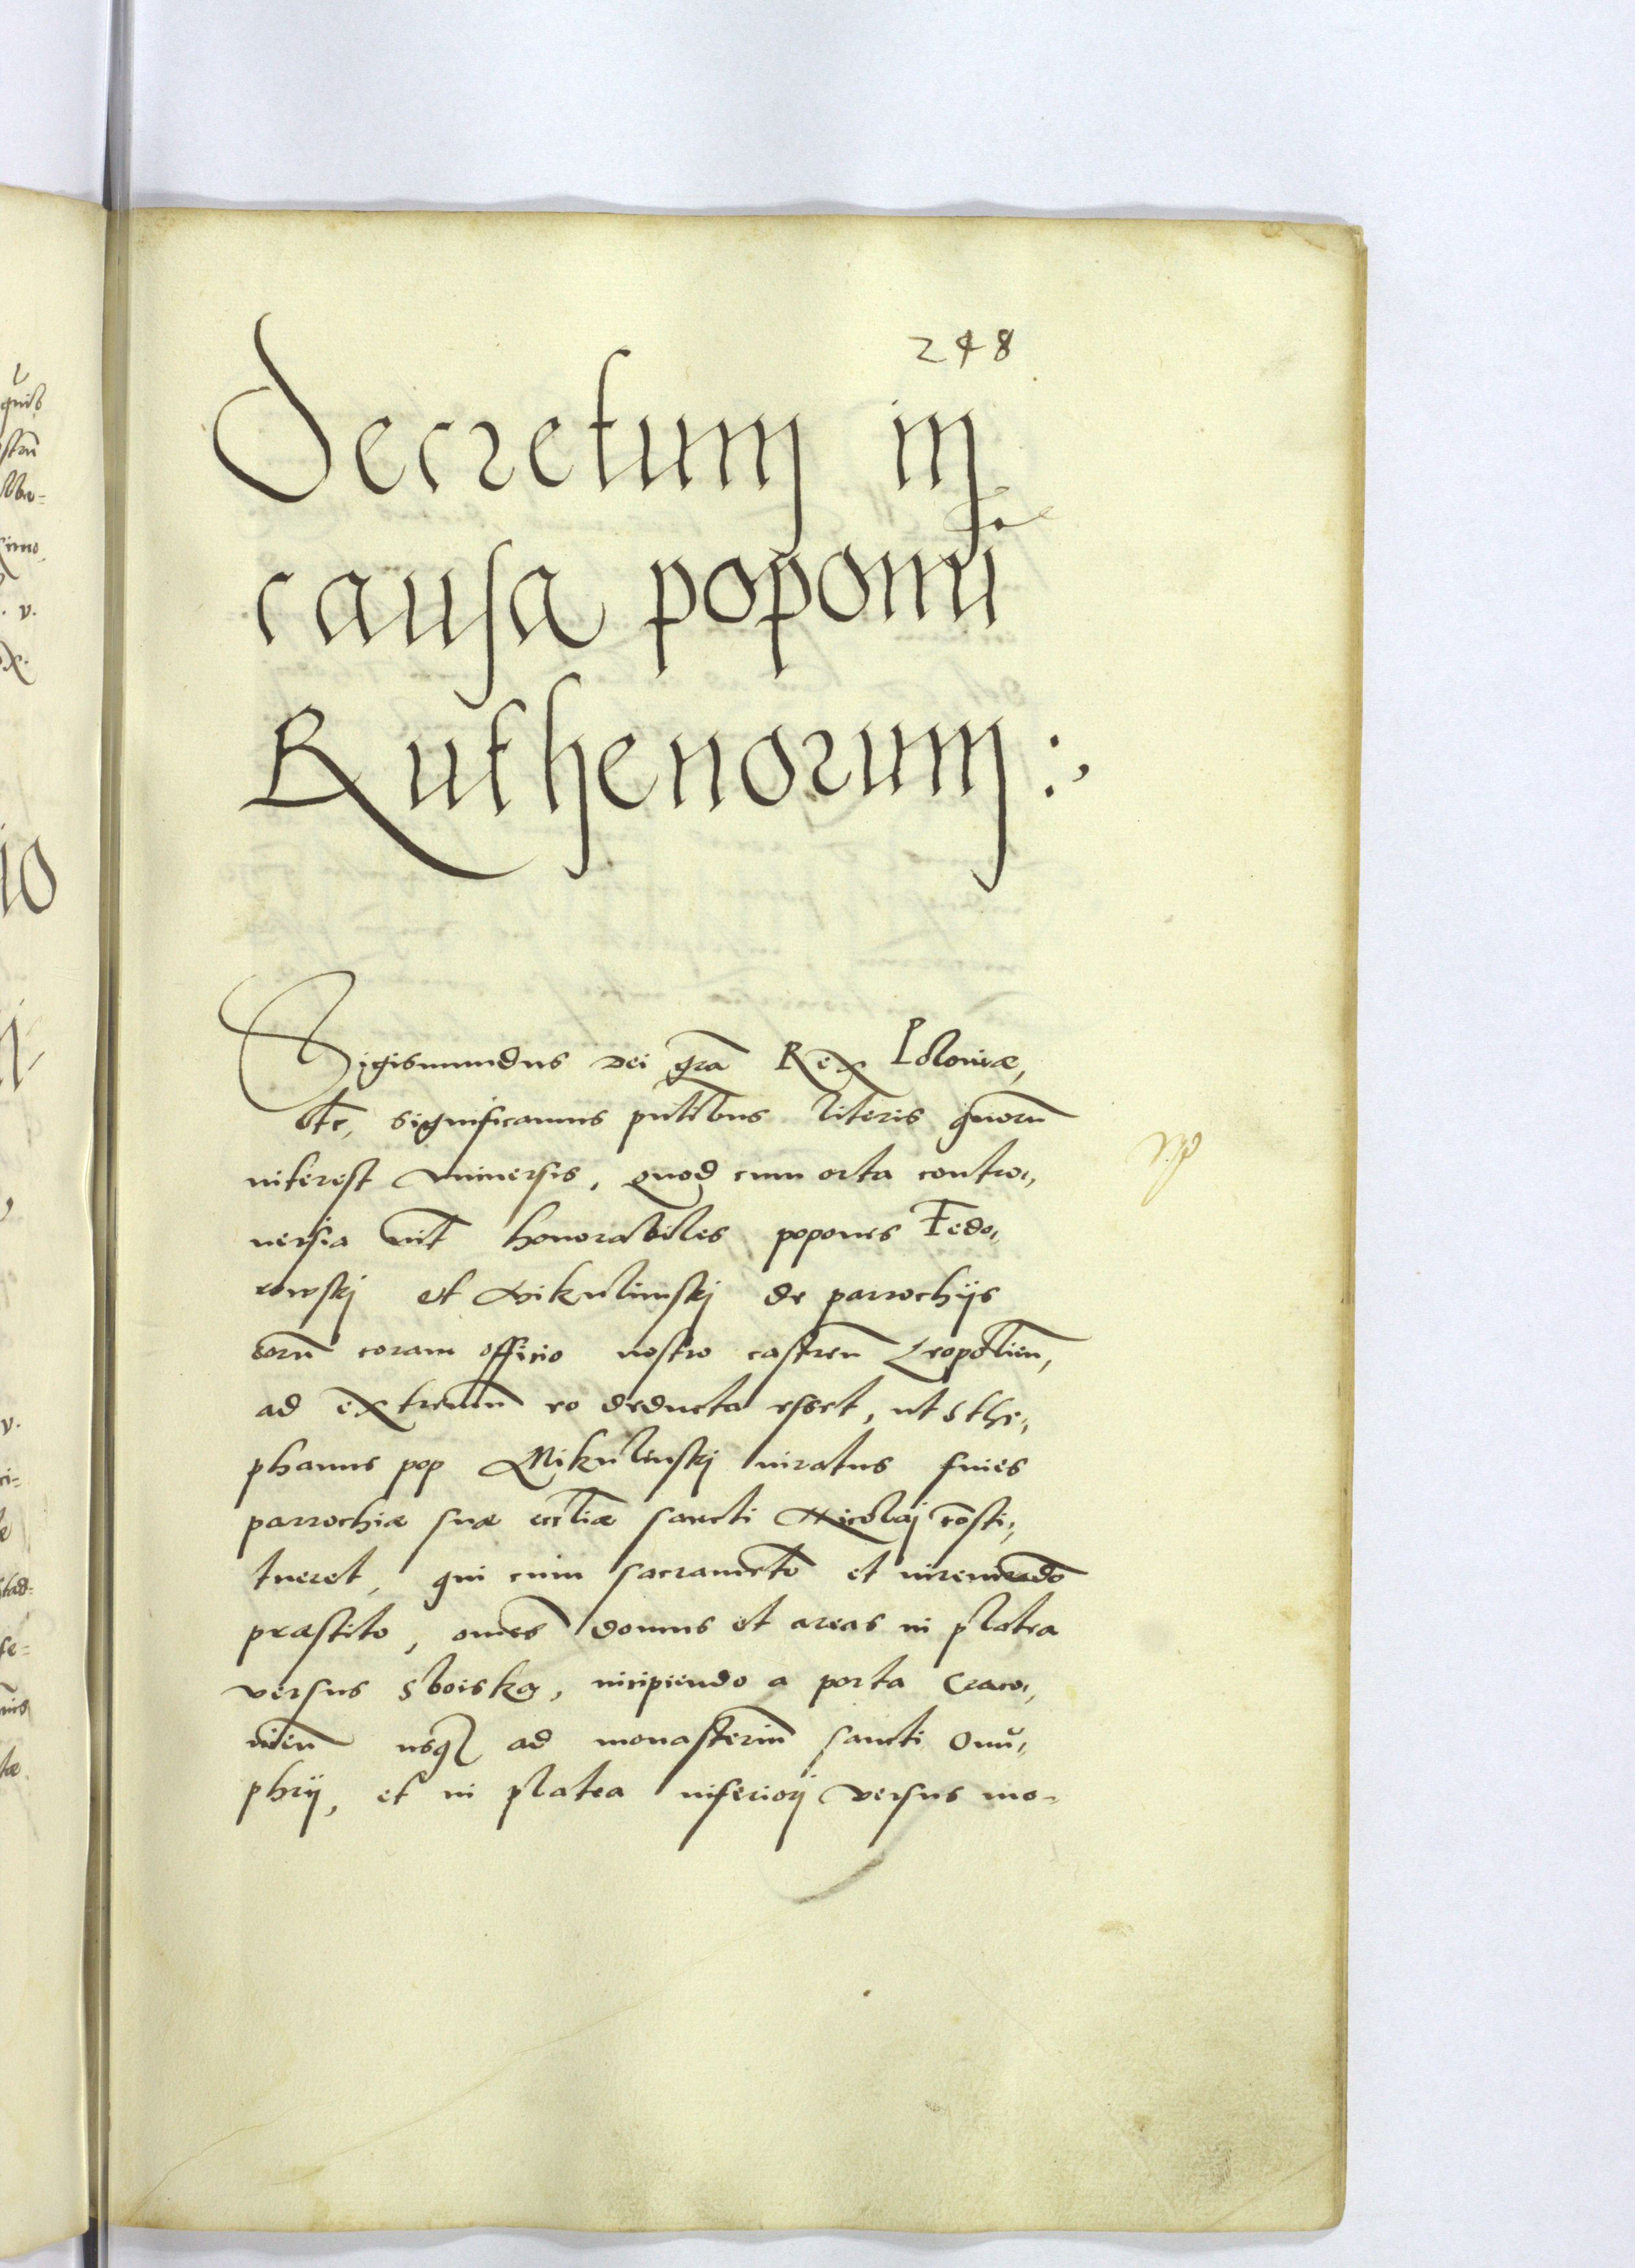 248
Decretum in
causa poponū
Ruthenorum :,
Sigismundus Dei gr̄a Rex Poloniæ,
etc, significamus pn̄tibus literis quorū
interest vniuersis, quod cum orta contro,,
uersia int̄ honorabiles popones Fedo,,
rowskj et Mikulinskj de parrochijs
eorū coram officio nostro castren̄ Leopolien̄,
ad extremū eo deducta esset, ut Sthe,,
phanus pop Mikulinskj iuratus fines
parrochiæ suæ eccl̄iæ sancti Nicolaj cōsti,,
tueret, qui cum sacramēto et iureiurādo
præstito, omēs domus et areas in platea
versus Sboiska, incipiendo a porta Craco,,
uien̄ usq₃ ad monasteriū sancti Onu,,
phrij, et in platea inferiorj versus mo-